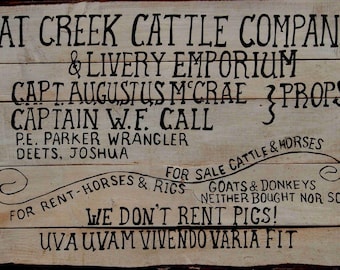 AT CREEK CATTLE COMPAN
& LIVERY EMPORIUM
CAPT. AUGUSTUS McCRAE } PROPS
CAPTAIN W.F. CALL
P.E. PARKER WRANGLER
DEETS, JOSHUA
FOR SALE CATTLE & HORSES
FOR RENT-HORSES & RIGS
GOATS & DONKEYS
NEITHER BOUGHT NOR SO
WE DON'T RENT PIGS!
UVA UVAM VIVENDO VARIA FIT